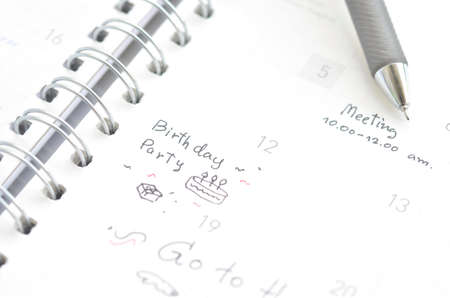 5
Meeting
10.00-12.00 am.
Birthday
Party
12
13
19
Go to
20